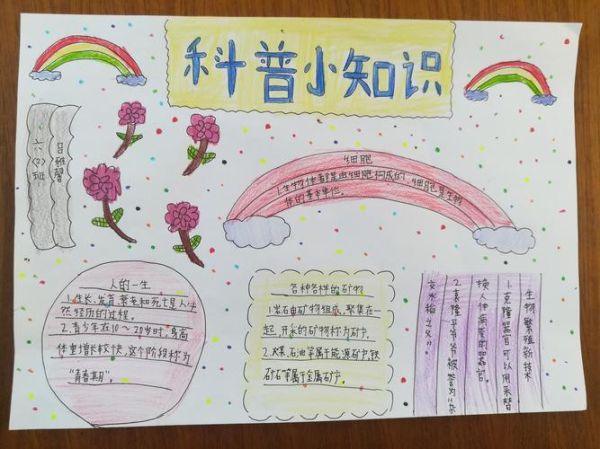 科普小知识
班
细胞
1.生物体都是由细胞构成的,细胞是生物
体的基本单位。
人的一生
1.生长、发育、衰老和死亡是人生必
然经历的过程。
2.青少年在10～20岁时,身高
体重增长较快,这个阶段称为
“青春期”。
各种各样的矿物
1.岩石由矿物组成,聚集在一
起,开采的矿物称为矿产。
2.煤、石油等属于能源矿产,铁
矿石等属于金属矿产。
生物繁殖新技术
1.克隆器官可以用来替
换人体病变的器官。
2.袁隆平爷爷被誉为“杂
交水稻之父”。